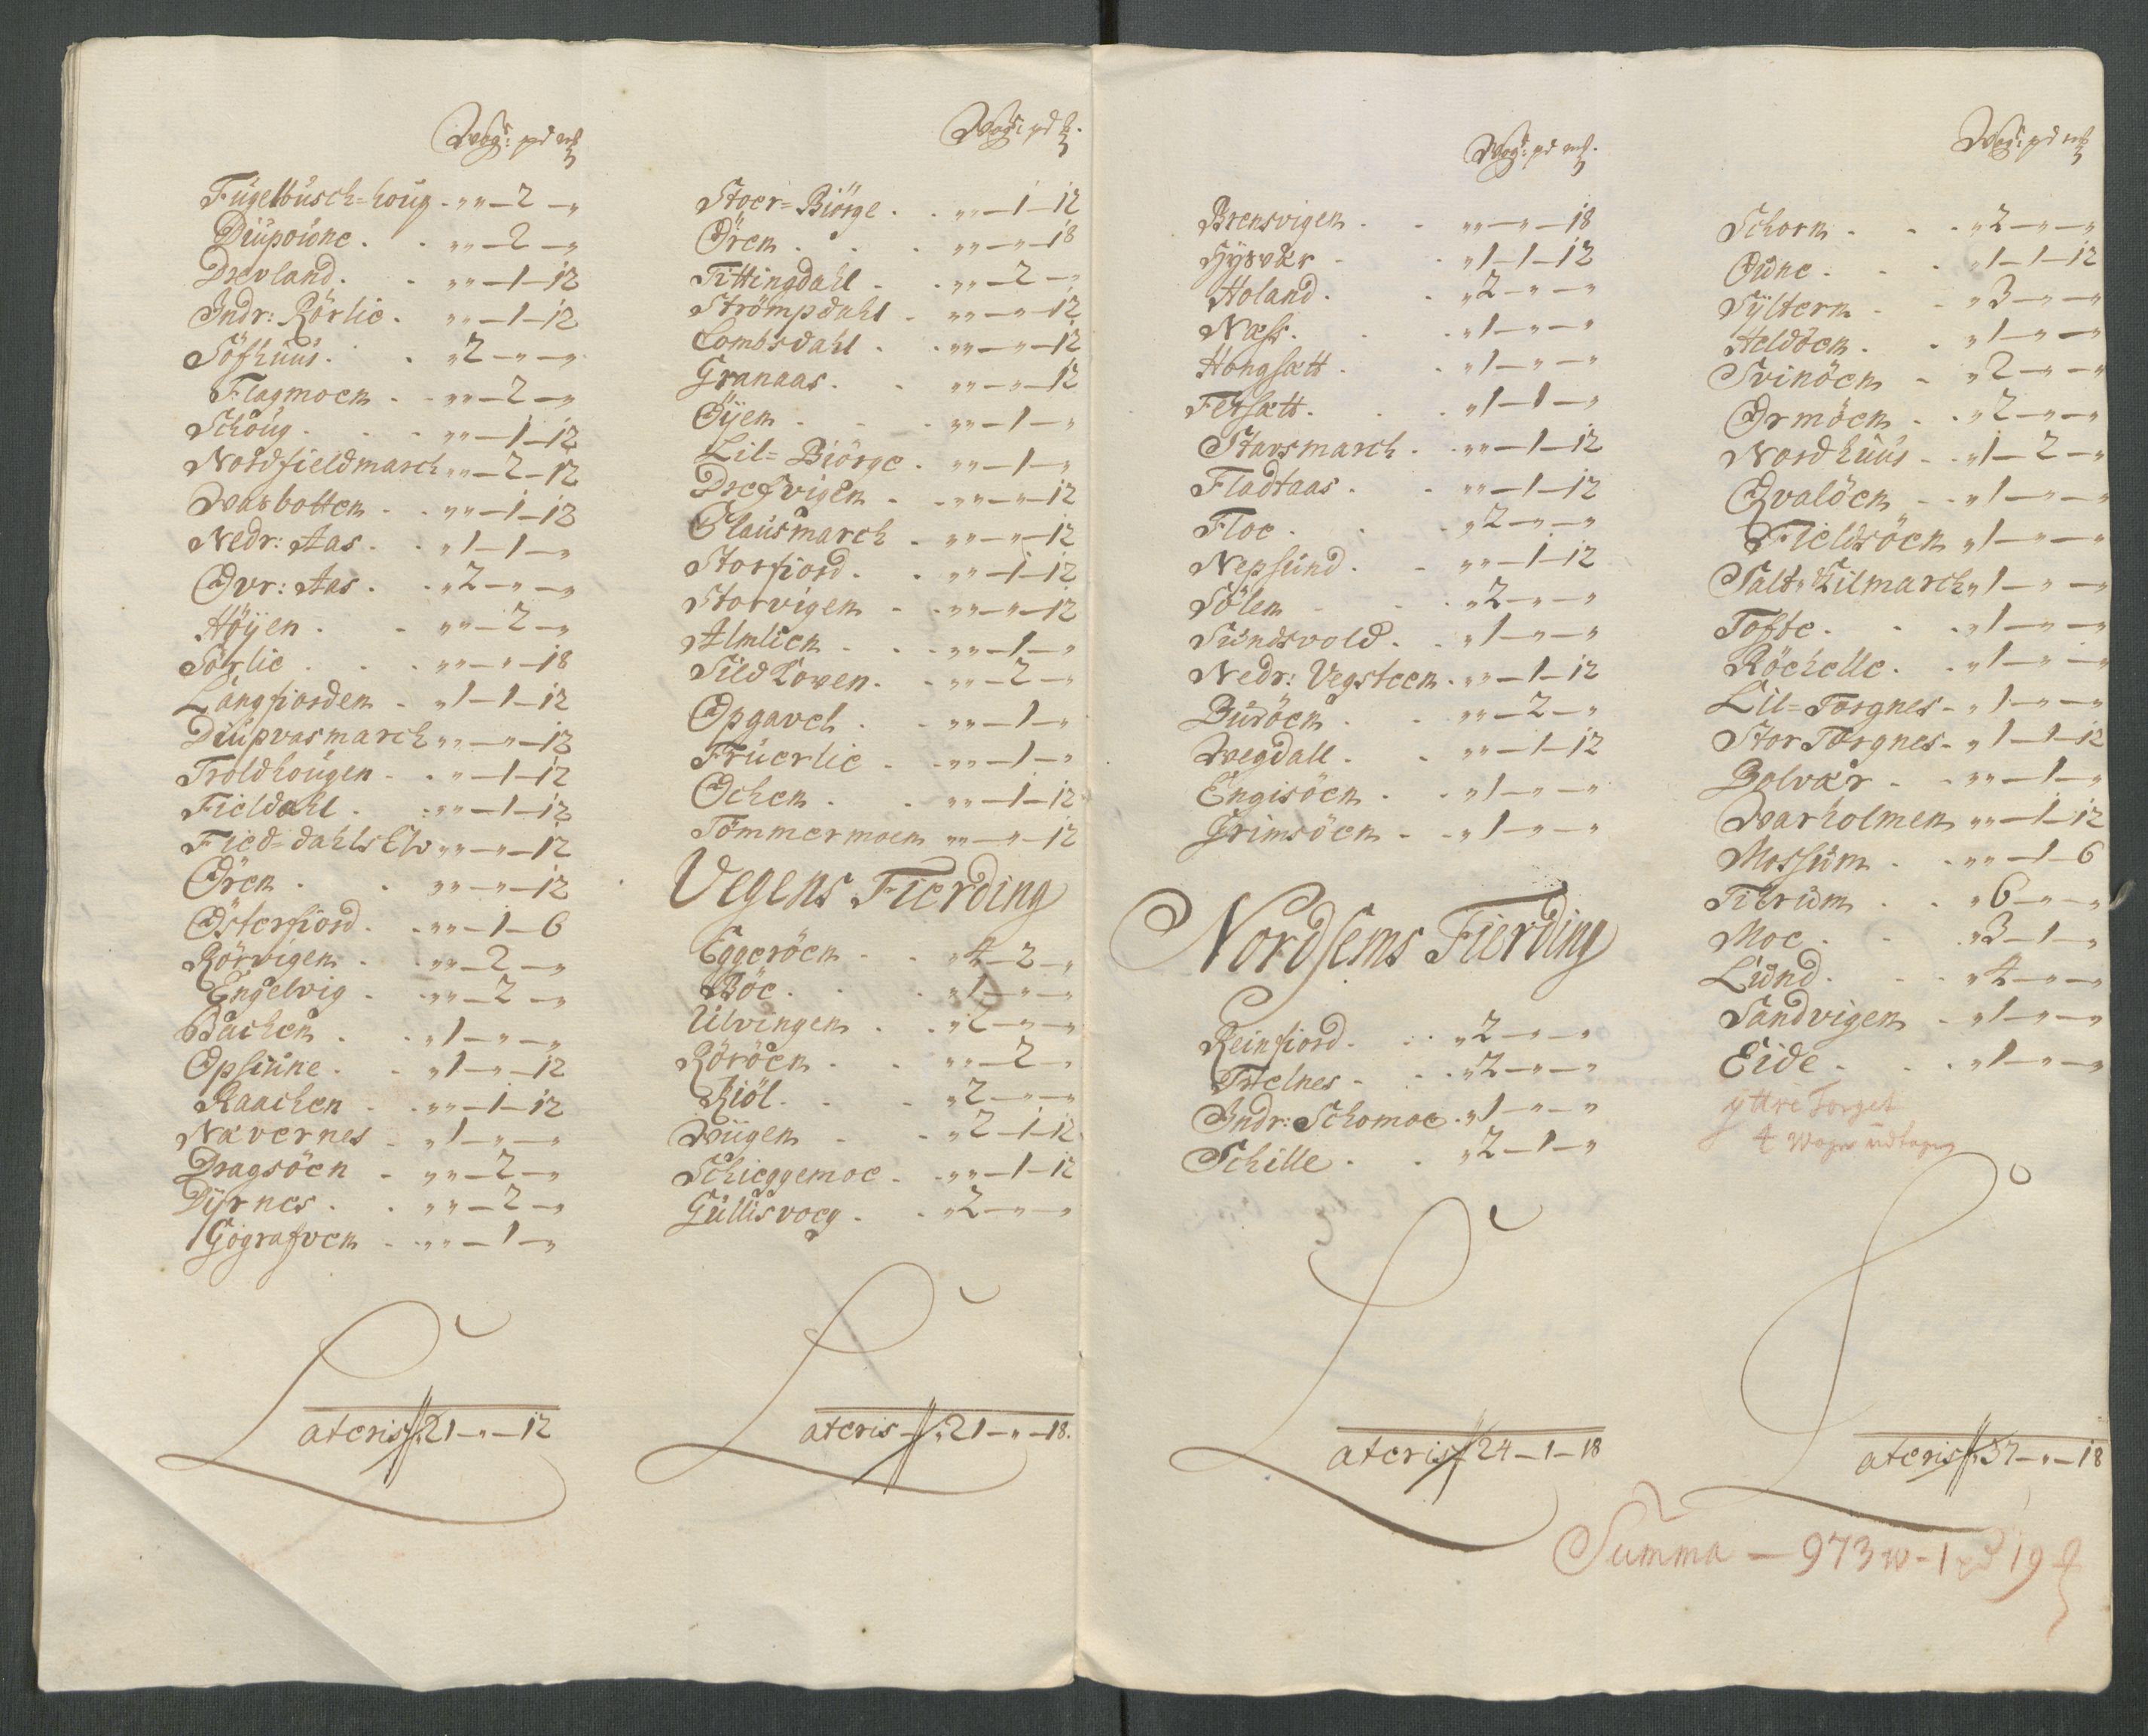 Wog: pd mk
Fugelbusch=houg - „„ - 2 - „
Diupoidne . . „„ - 2 - „
Drevland . . „„ - 1 - 12
Indr: Rörlie . „„ - 1 - 12
Söfhuus . . „ 2 - „ - „
Flagmoen . . „„ - 2 - „
Schoug . . . „„ - 1 - 12
Nordfieldmarch „„ - 2 - 12
Wasbotten . . „„ - 1 - 12
Nedr: Aas . . „ 1 - 1 - „
Ovr: Aas . . „ 2 - „ - „
Höyen . . „„ - 2 - „
Sörlie . . . „„ - „ - 18
Langfiorden . „ 1 - 1 - 12
Diupvasmarch „„ - „ - 12
Troldhougen . . „ - 1 - 12
Fieldahl . „„ - 1 - 12
Fied=dahls Elv „„ - „ - 12
Ören . . „„ - „ - 12
Österfiord . . „„ - 1 - 6
Rörvigen . . „„ - 2 - „
Engelvig . . „„ - 2 - „
Bachen . . „ 1 - „ - „
Opsiune . . „ 1 - „ - 12
Raachen . . „„ - 1 - 12
Nævernes . „ 1 - „ - „
Dragsöen . „„ - 2 - „
Dyrnes . . „„ - 2 - „
Gögrafven . „„ - 1 - „
Lateris 21 - „ - 12
Wog: pd mk.
Stoer=Biörge . . „„ - 1 - 12
Ören . . . „„ - „ - 18
Tittingdahl . . „„ - 2 - „
Strömpdahl . „„ - „ - 12
Lombsdahl . . „„ - „ - 12
Granaas . . „„ - „ - 12
Öyen . . . „„ - 1 - „
Lil=Biörge . „„ - 1 - „
Drefvigen . . „„ - „ - 12
Clausmarch . „„ - „ - 12
Storfiord . . „„ - 1 - 12
Storvigen . . „„ - „ - 12
Almlien . . . „„ - 1 - „
Sildhoven . . „„ - 2 - „
Opgaveh . . „„ - 1 - „
Fruerlie . . „„ - 1 - „
Ochen . . „„ - 1 - 12
Tömmermoen „„ - „ - 12
Vegens Fierding
Eggeröen . . „ 4 - 2 - „
Böe . . . „ 1 - „ - „
Ulvingen . . „ 2 - „ - „
Röröen . . „„ - 2 - „
Kiöl . . . „ 2 - „ - „
Wiigen . . „ 2 - 1 - 12
Schieggemoe . „„ - 1 - 12
Gullisvoeg . . „ 2 - „ - „
Lateris „ 21 - „ - 18.
Wog: pd mk.
Brensvigen . . „„ - „ - 18
Hysvær . . „ 1 - 1 - 12
Holand . . „ 2 - „ - „
Næss . . . „ 1 - „ - „
Hongsætt . . „ 1 - „ - „
Fersætt . . . „ 1 - 1 - „
Stavsmarch . „„ - 1 - 12
Fladtaas . . „„ - 1 - 12
Floe . . . „ 2 - „ - „
Nepsund . . „„ - 1 - 12
Sölen . . „ 2 - „ - „
Sundsvold . . „ 1 - „ - „
Nedr: Vegsteen . „„ - 1 - 12
Buröen . . „„ - 2 - „
Wegdall . . „„ - 1 - 12
Engisöen . . „ 1 - „ - „
Grimsöen . . „ 1 - „ - „
Nordsems Fierding
Reinfiord . . „ 2 - „ - „
Trælnes . . . „ 2 - „ - „
Indr: Schomoe . „ 1 - „ - „
Schille . . „ 2 - 1 - „
Lateris 24 - 1 - 18
Wog: pd mk
Schorn . . . „ 2 - „ - „
Oidne . . . „ 1 - 1 - 12
Syltern . . „ 3 - „ - „
Heldöen . . „ 1 - „ - „
Svinöen . „ 2 - „ - „
Ormöen . . „ 2 - „ - „
Nordhuus . . „ 1 - 2 - „
Qvalöen . . „ 1 - „ - „
Fieldsöen „ 1 - „ - „
Salt=Kilmarch „ 1 - „ - „
Tofte . . . „ 1 - „ - „
Röchelle . . „ 1 - „ - „
Lil=Torgnes . „ 1 - „ - „
Stor Torgnes . „ 1 - 1 - 12
Bolvær . . „„ - 1 - „
Warholmen „„ - 1 - 12
Mossum . . „„ - 1 - 6
Tilrum . . „ 6 - „ - „
Moe . . . „ 3 - 1 - „
Lund . . . „ 4 - „ - „
Sandvigen . „ 1 - „ - „
Eide . . . „ 1 - „ - „
yttre Torget
4 Woger udtagen
Lateris 37 - „ - 18
Summa - 973 w - 1 pd 19 mk